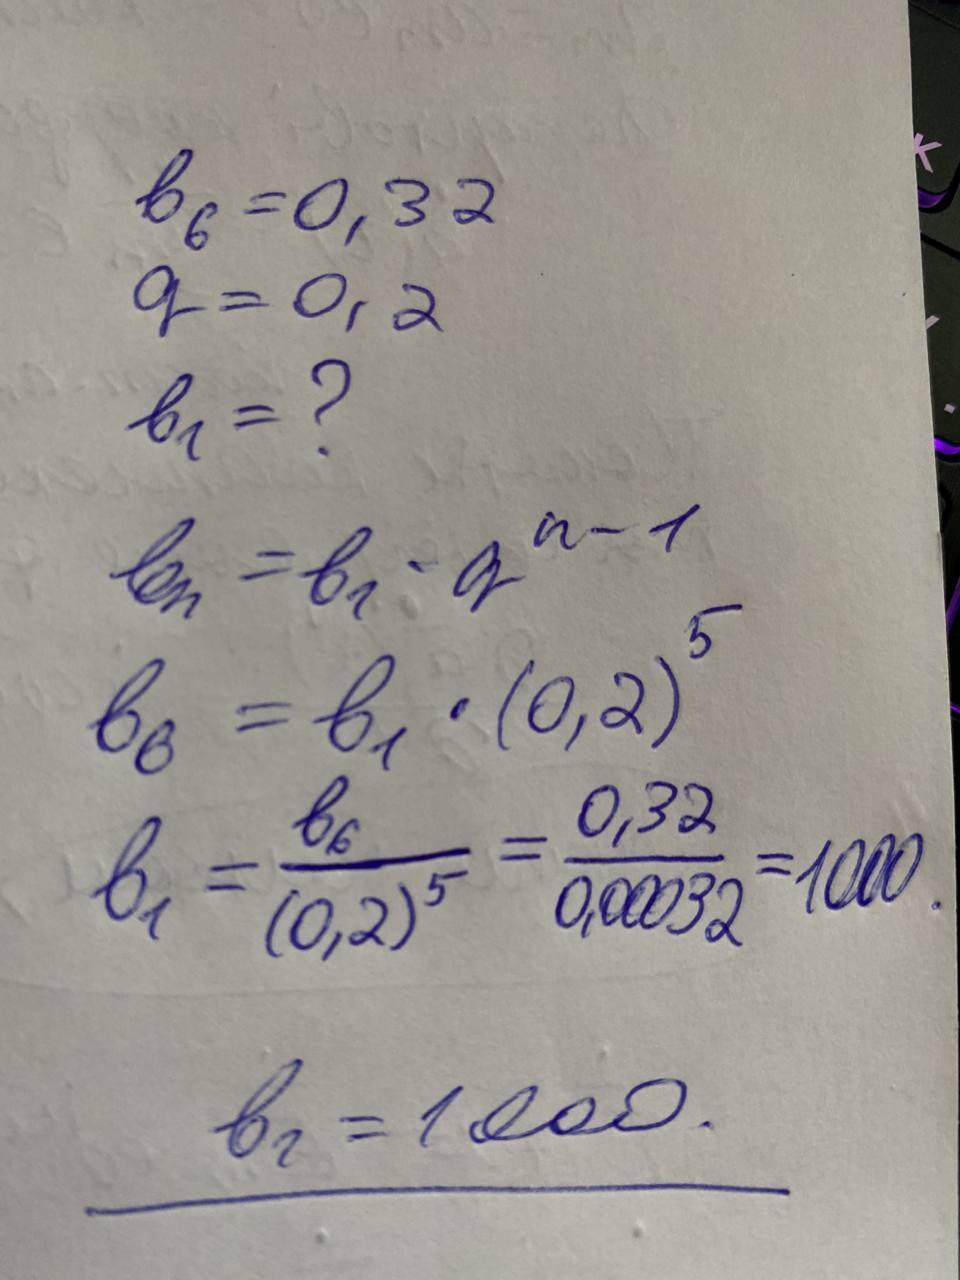 b₆ = 0,32
q = 0,2
b₁ = ?
bn = b₁ · q^n-1
b₆ = b₁ · (0,2)^5
b₁ = b₆/(0,2)^5 = 0,32/0,00032 = 1000.
b₁ = 1000.